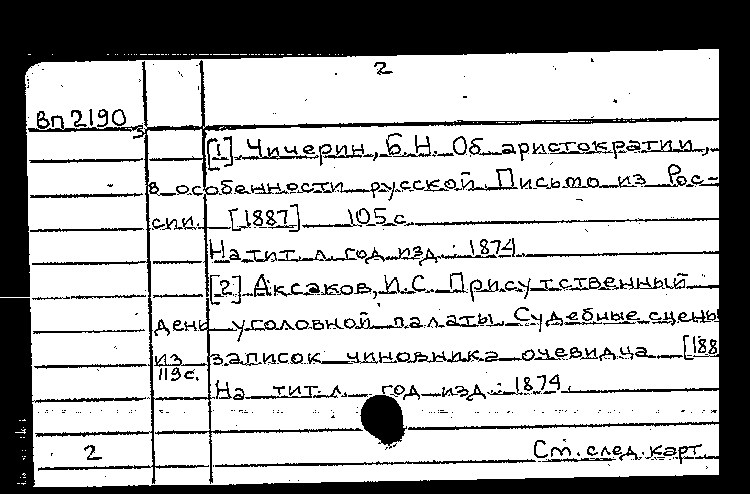 2
Вп 2190
3
[1] Чичерин, Б.Н. Об аристократии,
в особенности русской. Письмо из Рос-
сии. [1887] 105 с.
На тит. л. год изд.: 1874.
[2] Аксаков, И.С. Присутственный
день уголовной палаты. Судебные сцены
из записок чиновника очевидца [188
119 с.
На тит. л. год изд.: 1874.
2
См. след. карт.